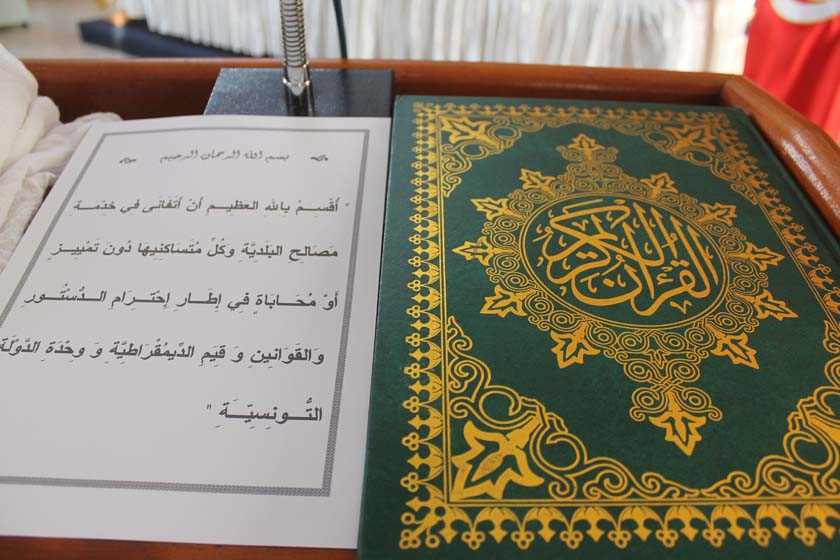 بسم الله الرحمان الرحيم
" أُقْسِمُ بِاللهِ العَظِيمِ أنْ أتَفَانَى فِي خِدْمَة
مَصَالِحِ البَلَدِيَّةِ وَكُلِّ مُتَسَاكِنِيهَا دُونَ تَمْيِيزٍ
أوْ مُحَابَاةٍ فِي إِطَارِ إحْتِرَامِ الدُّسْتُورِ
وَالقَوَانِينِ وَ قِيَمِ الدِّيمُقْرَاطِيَّةِ وَ وِحْدَةِ الدَّوْلَة
التُّونِسِيَّةِ "
القرآن الكريم